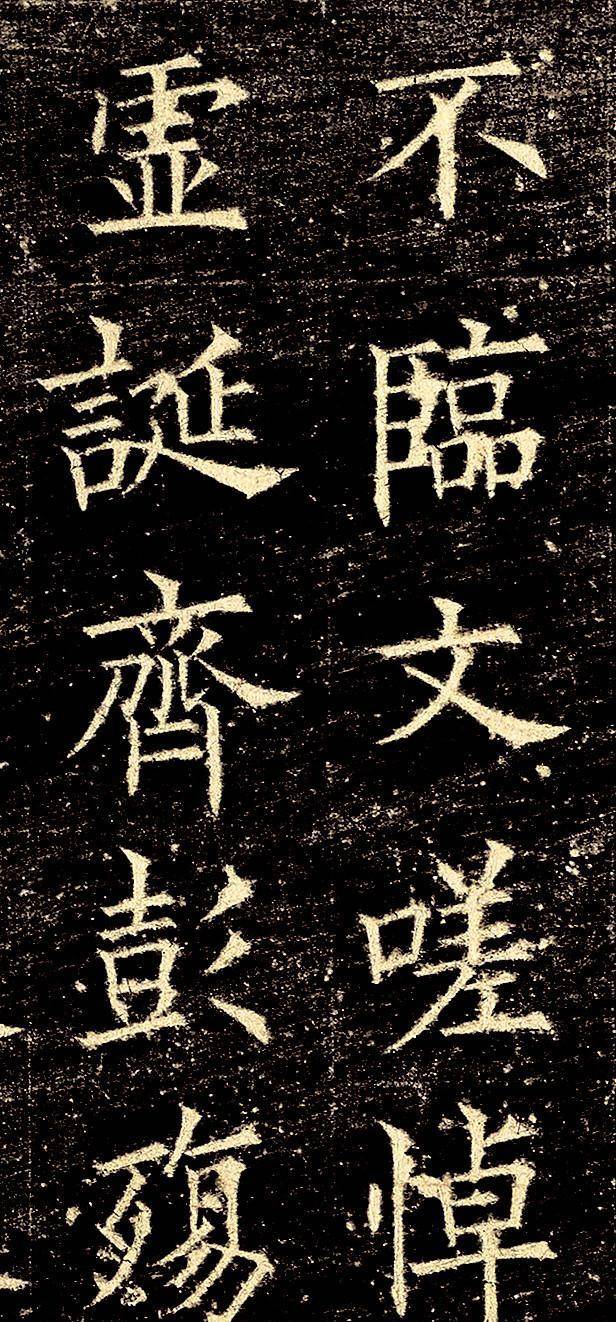 不臨文嗟悼
虛誕齊彭殤